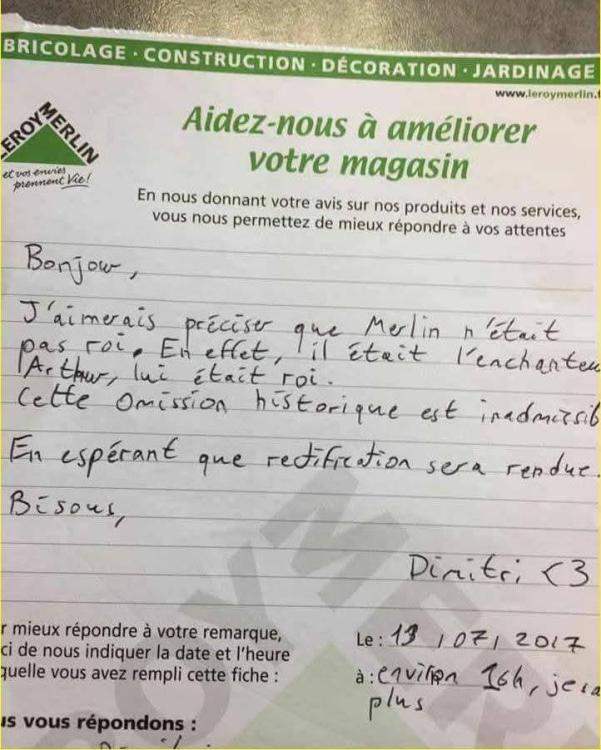 BRICOLAGE · CONSTRUCTION · DÉCORATION · JARDINAGE
www.leroymerlin.f
LEROY MERLIN
et vos envies
prennent Vie!
Aidez-nous à améliorer
votre magasin
En nous donnant votre avis sur nos produits et nos services,
vous nous permettez de mieux répondre à vos attentes
Bonjour,
J'aimerais préciser que Merlin n'était
pas roi. En effet, il était l'enchanteu
Arthur, lui était roi.
Cette omission historique est inadmissib
En espérant que rectification sera rendue.
Bisous,
Dimitri <3
r mieux répondre à votre remarque,
ci de nous indiquer la date et l'heure
quelle vous avez rempli cette fiche :
Le : 13 / 07 / 2017
à : environ 16h, je sa
plus
us vous répondons :